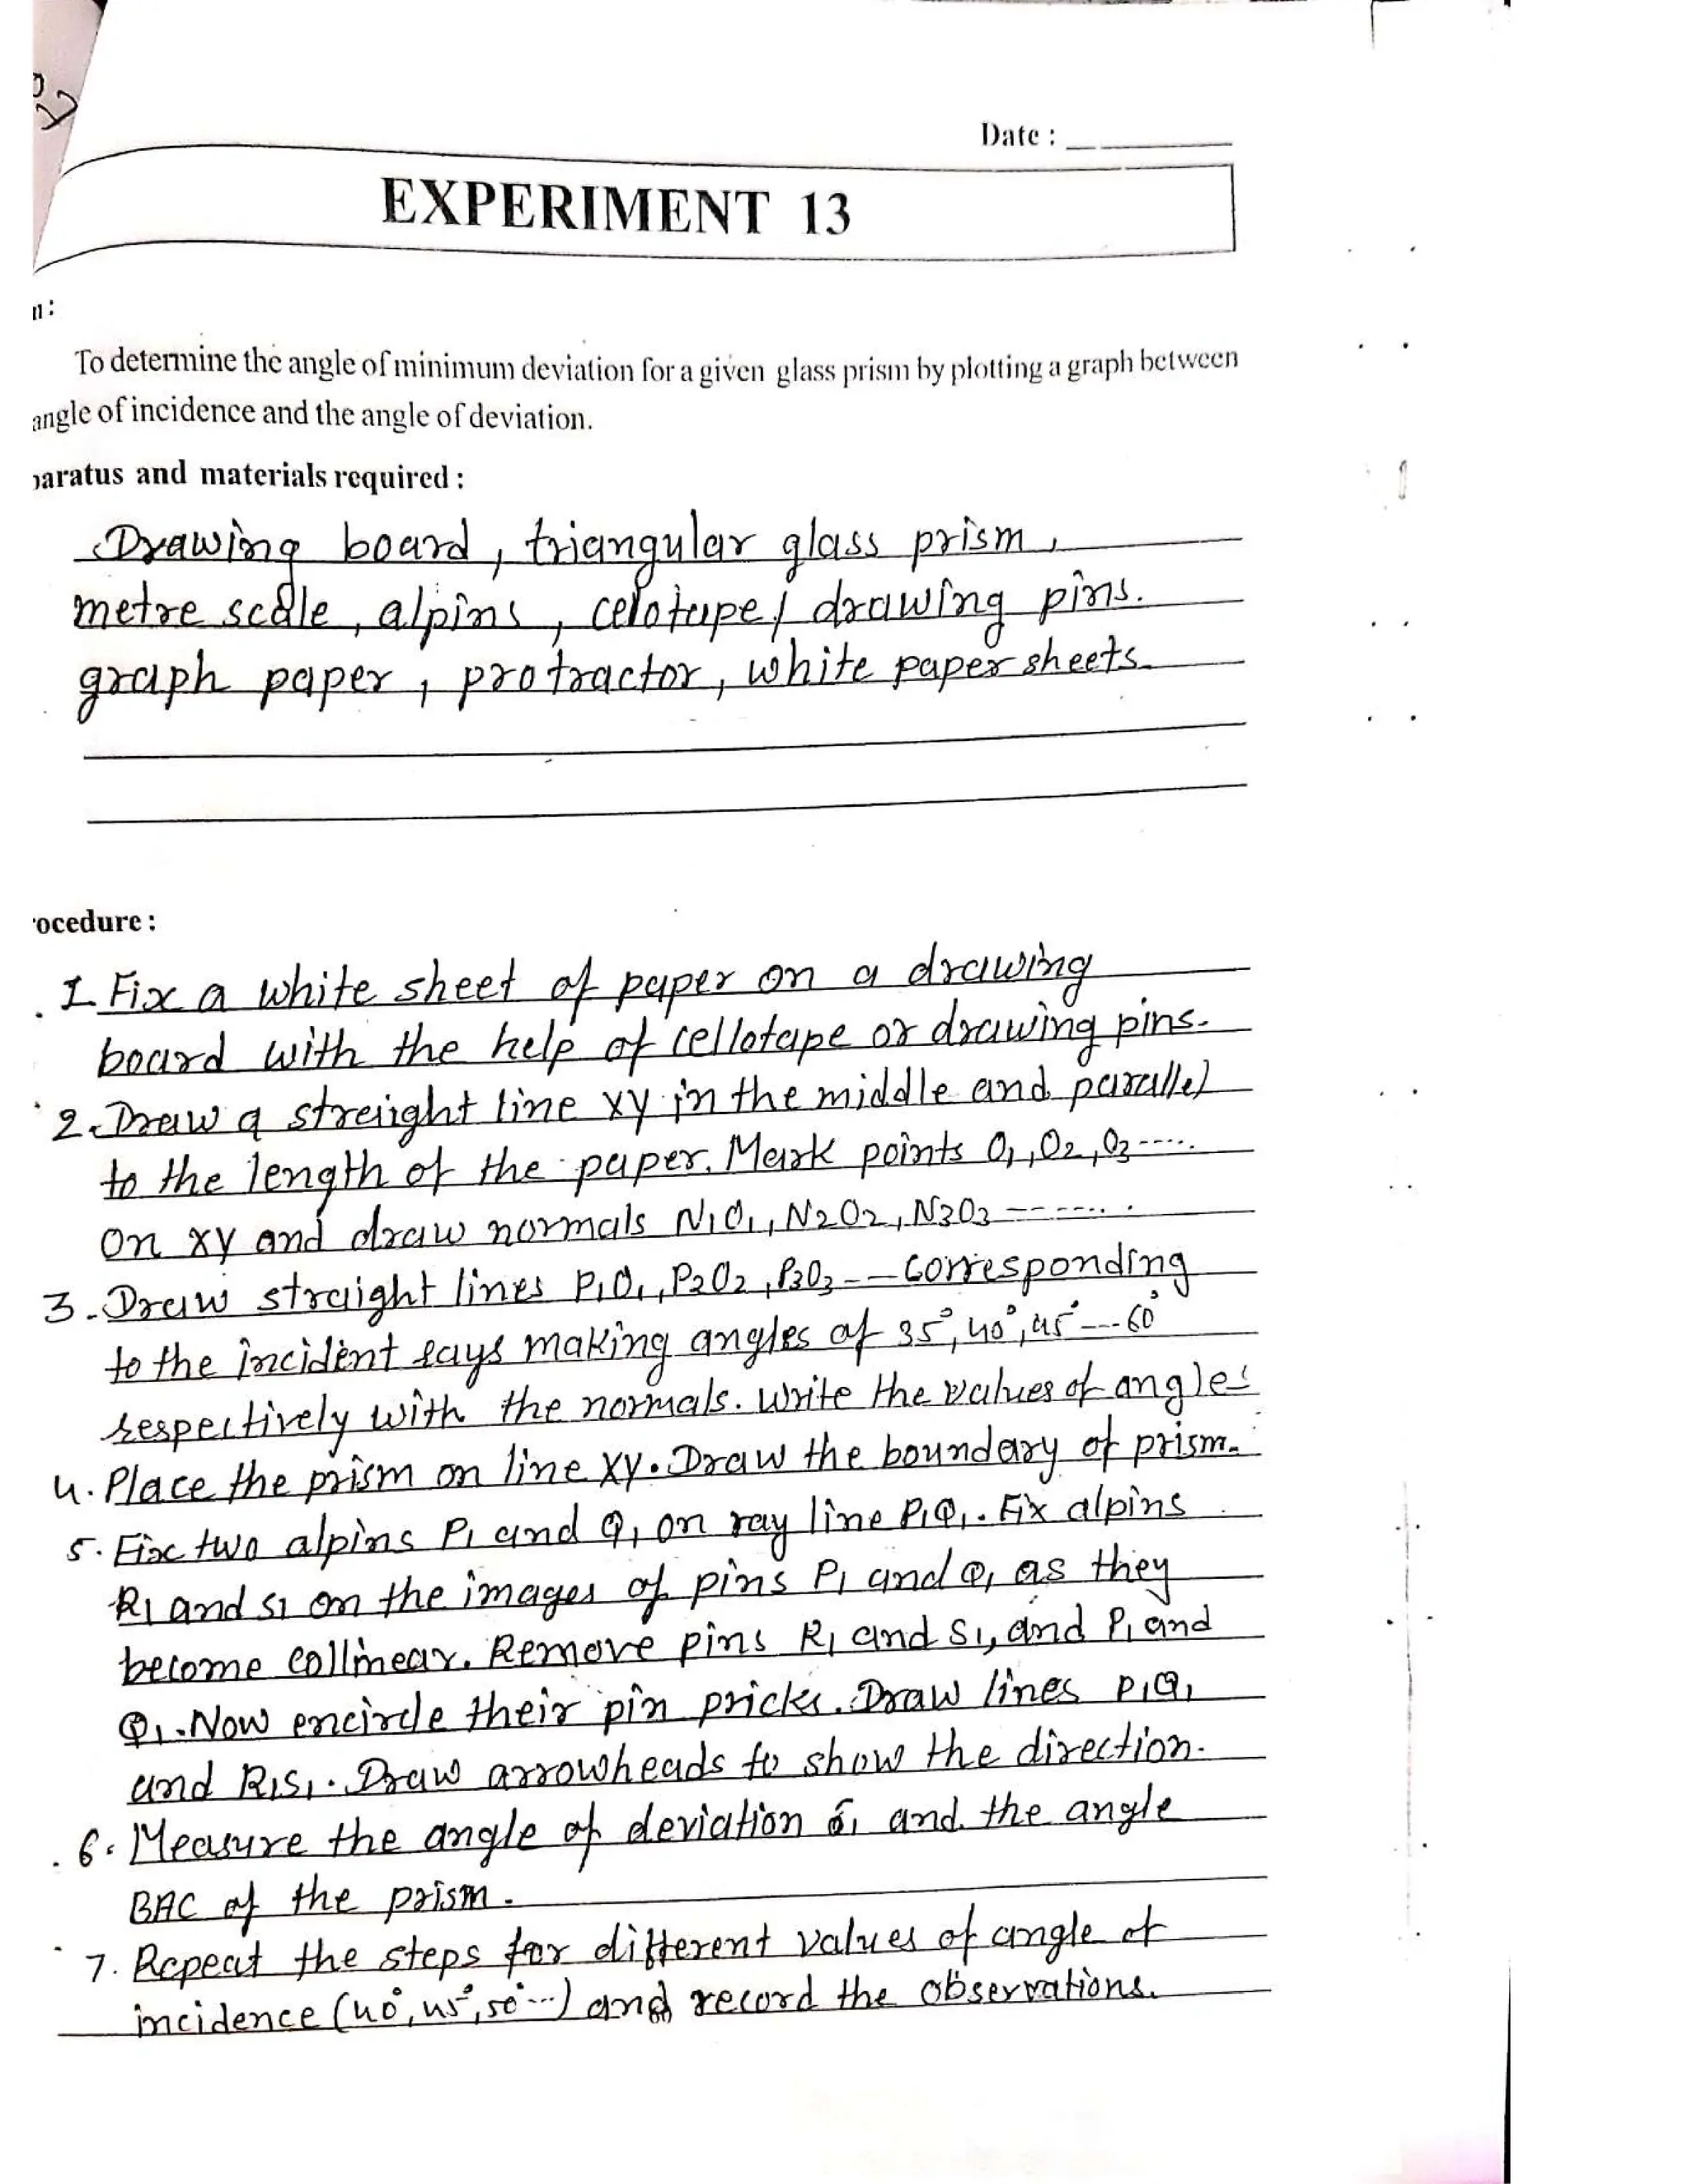 Date :
EXPERIMENT 13
n:
To determine the angle of minimum deviation for a given glass prism by plotting a graph between
angle of incidence and the angle of deviation.
paratus and materials required :
Drawing board, triangular glass prism,
metre scale, alpins, celotape/ drawing pins.
graph paper, protractor, white paper sheets.
rocedure :
1. Fix a white sheet of paper on a drawing
board with the help of cellotape or drawing pins.
2. Draw a streight line xy in the middle and parallel
to the length of the paper. Mark points O1, O2, O3-----
on xy and draw normals N1O1, N2O2, N3O3-------
3. Draw straight lines P1O1, P2O2, P3O3--- corresponding
to the incident rays making angles of 35°, 40°, 45°---60°
respectively with the normals. Write the values of angles
4. Place the prism on line xy. Draw the boundary of prism.
5. Fix two alpins P1 and Q1 on ray line P1Q1. Fix alpins
R1 and S1 on the images of pins P1 and Q1 as they
become collinear. Remove pins R1 and S1, and P1 and
Q1. Now encircle their pin pricks. Draw lines P1Q1
and R1S1. Draw arrowheads to show the direction.
6. Measure the angle of deviation δ1 and the angle
BAC of the prism.
7. Repeat the steps for different values of angle of
incidence (40°, 45°, 50°---) and record the observations.